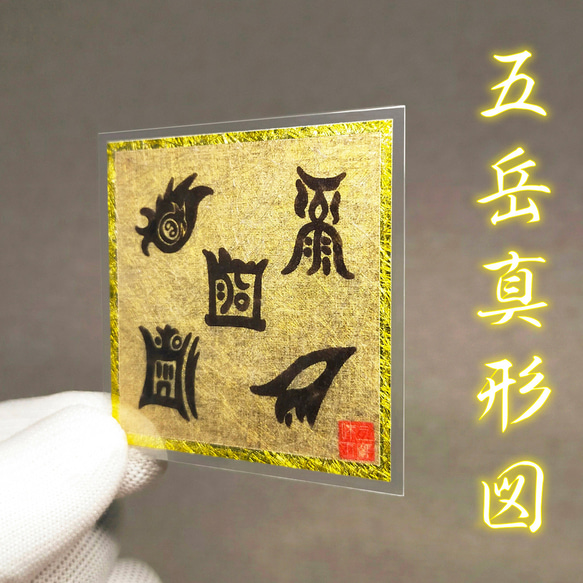 五岳真形図